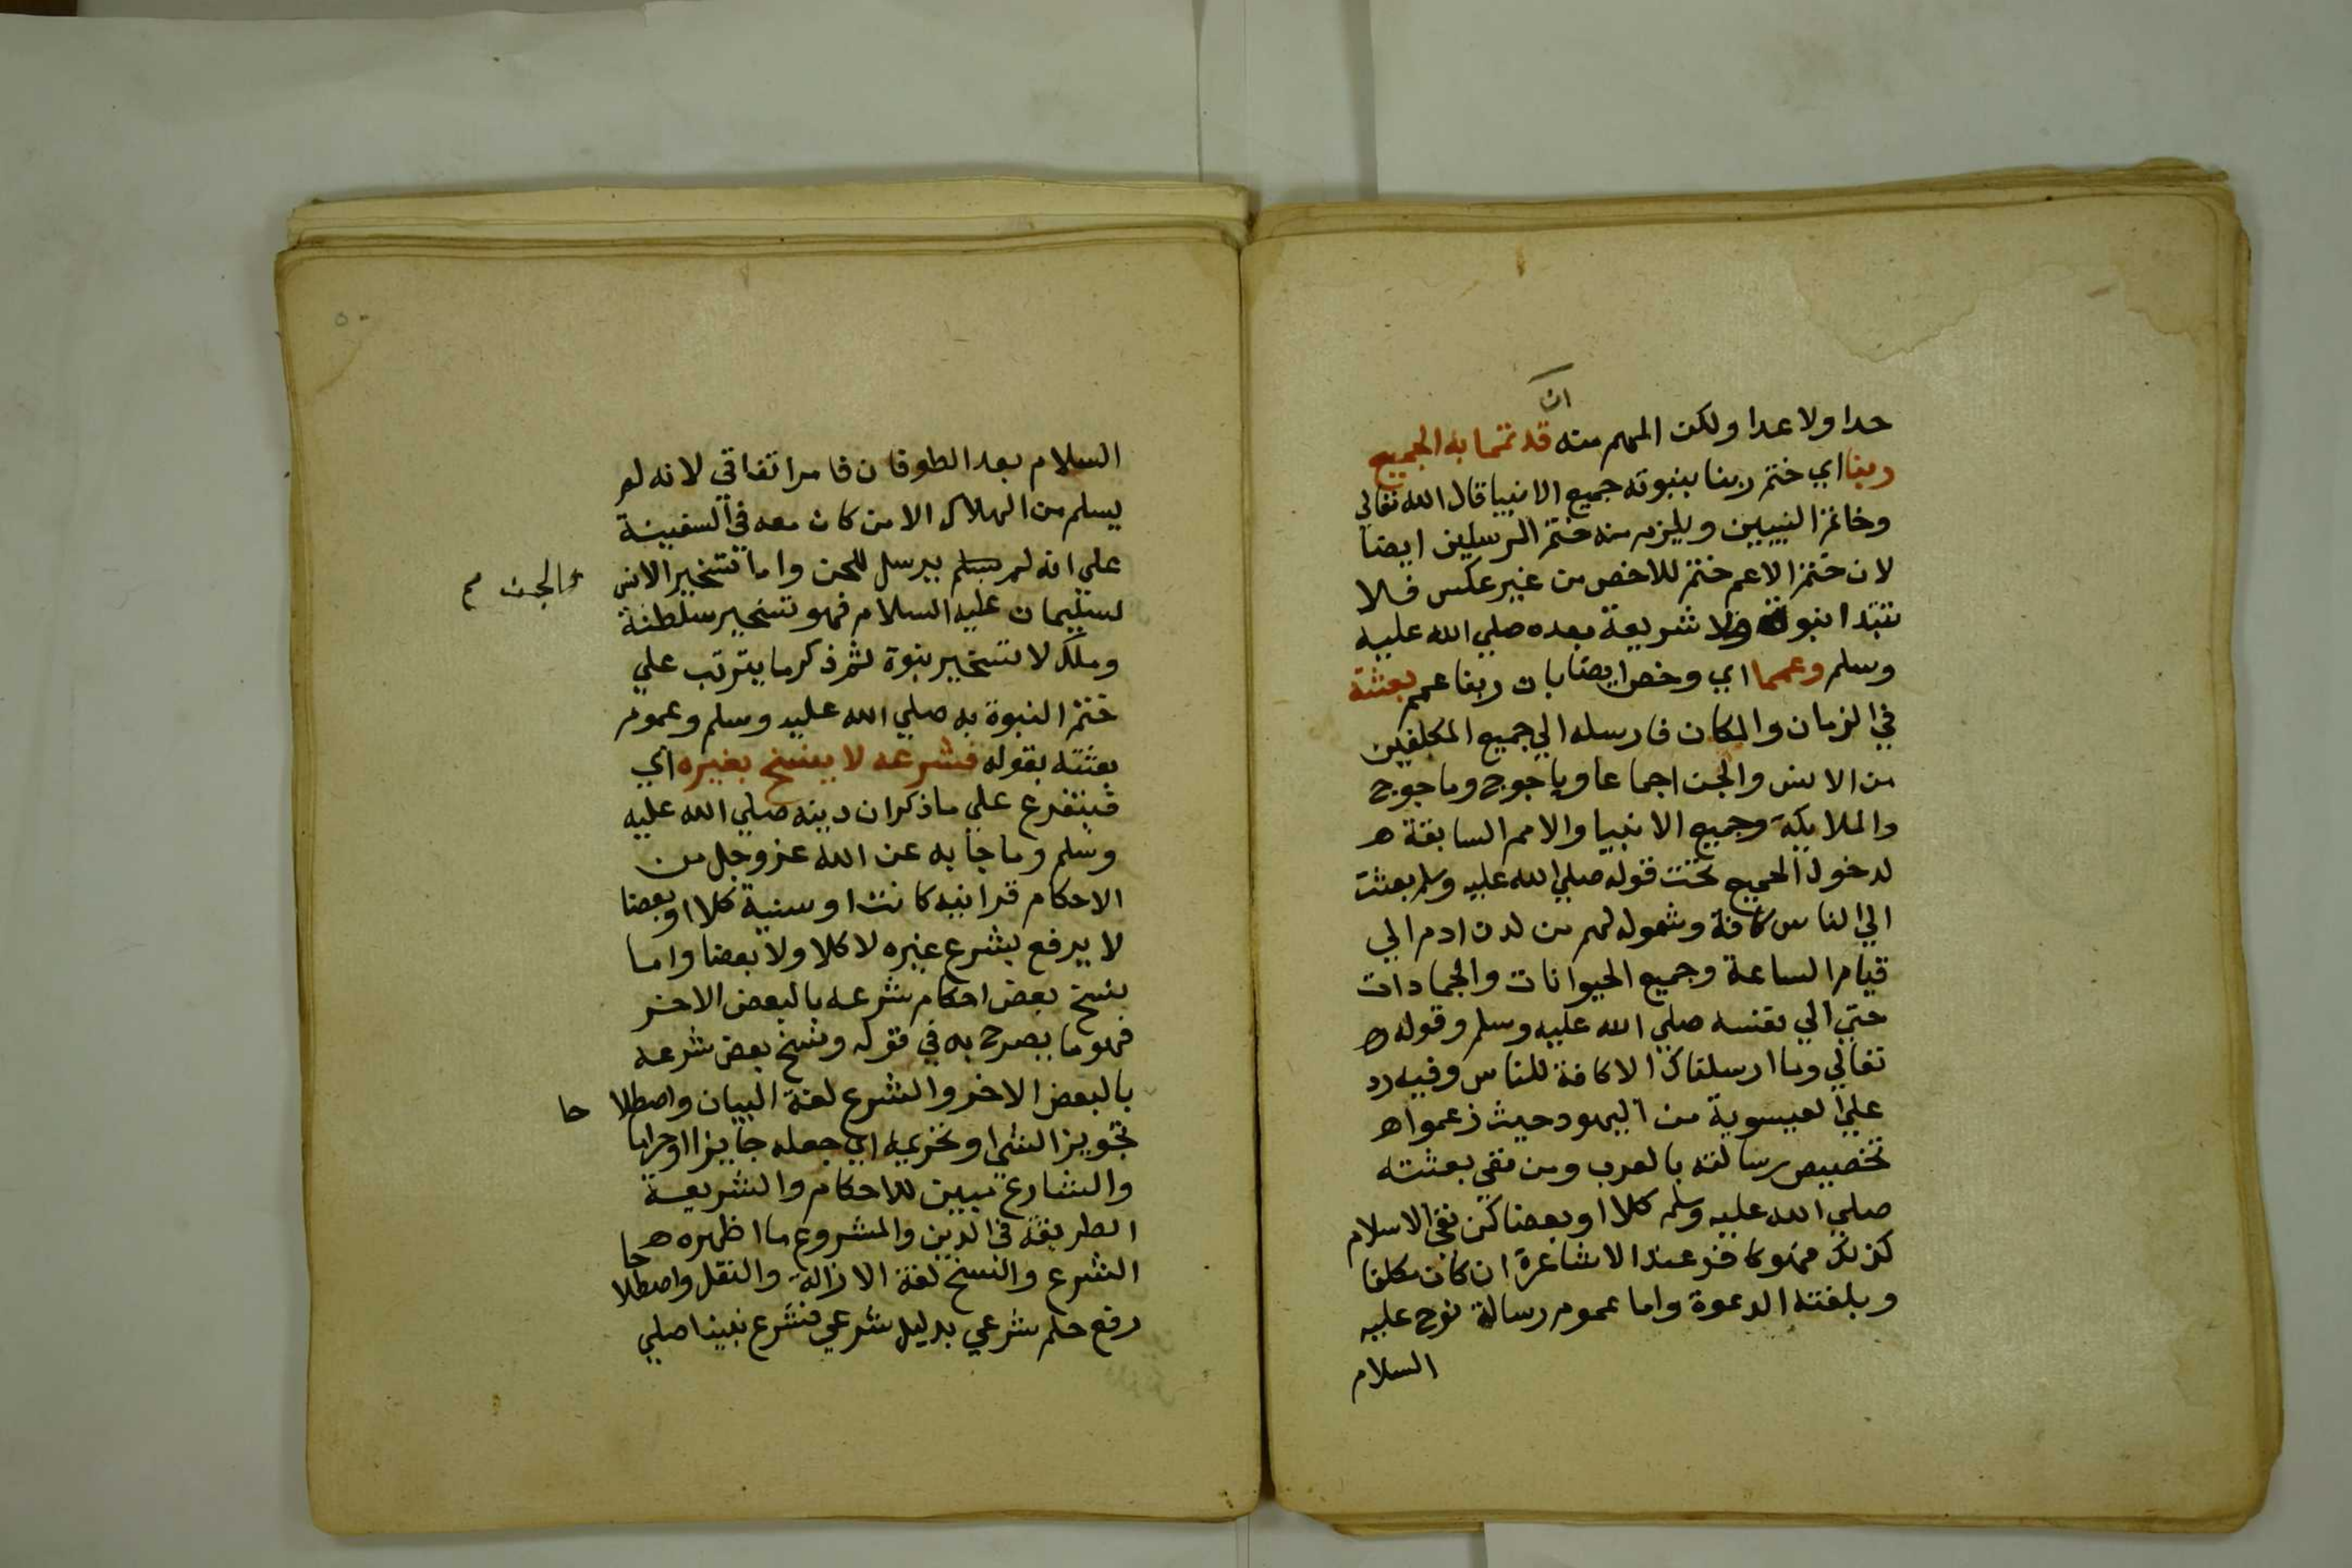 ان
حدا ولا عدا ولكن المهم منه قد تمما به الجميع
ربنا اي ختم ربنا بنبوته جميع الانبيا قال الله تعالي
وخاتم النبيين ويلزم منه ختم المرسلين ايضا
لان ختم الاعم ختم للاخص من غير عكس فلا
تبتدا نبوة ولا شريعة بعده صلي الله عليه
وسلم وعمما اي وخص ايضا بان ربنا عمم بعثته
في الزمان والمكان فارسله الي جميع المكلفين
من الانس والجن اجماعا وياجوج وماجوج
والملايكة وجميع الانبيا والامم السابقة ه
لدخول الجميع تحت قوله صلي الله عليه وسلم بعثت
الي الناس كافة وشموله لهم من لدن ادم الي
قيام الساعة وجميع الحيوانات والجمادات
حتي الي نفسه صلي الله عليه وسلم وقوله ه
تعالي وما ارسلناك الا كافة للناس وفيه رد
علي العيسوية من اليهود حيث زعموا ه
تخصيص رسالته بالعرب ومن نفي بعثته
صلي الله عليه وسلم كلا او بعضا كمن نفي الاسلام
كذلك فهو كافر عند الاشاعرة ان كان مكلفا
وبلغته الدعوة واما عموم رسالة نوح عليه
السلام
٥٠
السلام بعد الطوفان فامر اتفاقي لانه لم
يسلم من الهلاك الا من كان معه في السفينة
علي انه لم يسلم يرسل للجن واما تسخير الانس
والجن
لسليمان عليه السلام فهو تسخير سلطنة
وملك لا تسخير نبوة ثم ذكر ما يترتب علي
ختم النبوة به صلي الله عليه وسلم وعموم
بعثته بقوله فشرعه لا ينسخ بغيره اي
فيتفرع علي ما ذكر ان دينه صلي الله عليه
وسلم وما جا به عن الله عز وجل من
الاحكام قرانيه كانت او سنية كلا او بعضا
لا يرفع بشرع غيره لا كلا ولا بعضا واما
نسخ بعض احكام شرعه بالبعض الاخر
فهو ما يصرح به في قوله ونسخ بعض شرعه
بالبعض الاخر والشرع لغة البيان واصطلا حا
تجويز الشي او تحريمه اي جعله جايزا او حراما
والشارع مبين للاحكام والشريعة
الطريقة في الدين والمشروع ما اظهره ه
الشرع والنسخ لغة الازالة والنقل واصطلاحا
رفع حكم شرعي بدليل شرعي فشرع نبينا صلي